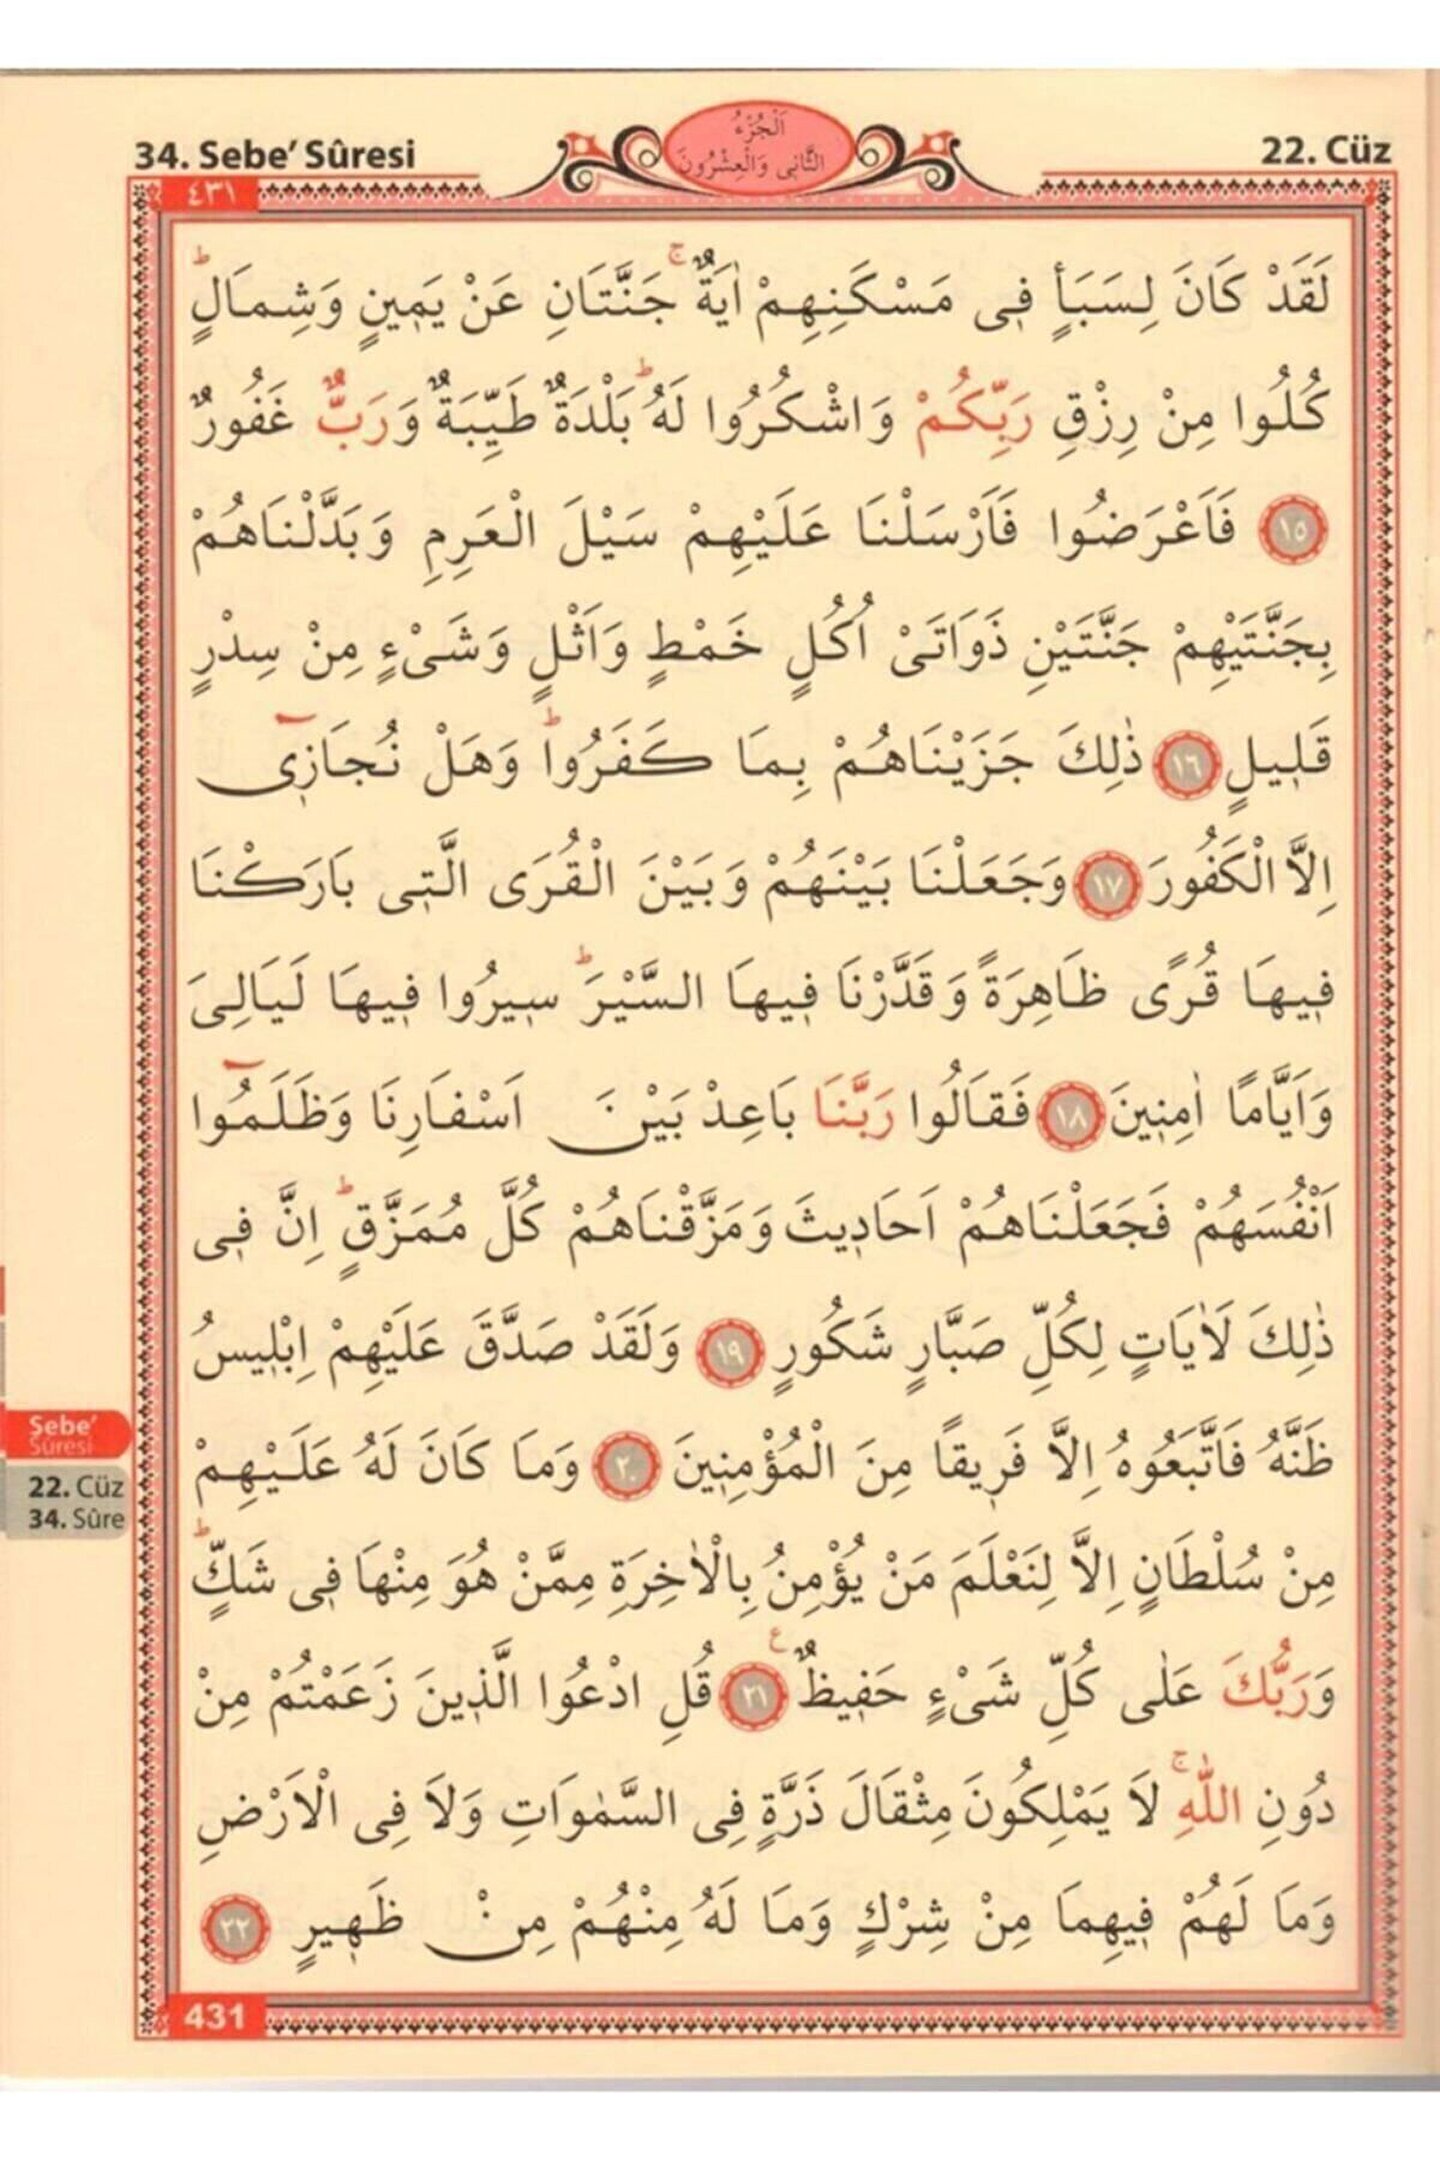 34. Sebe’ Sûresi
اَلْجُزْءُ
الثَّانِى وَالْعِشْرُونَ
22. Cüz
٤٣١
لَقَدْ كَانَ لِسَبَأٍ فٖى مَسْكَنِهِمْ اٰيَةٌۚ جَنَّتَانِ عَنْ يَمٖينٍ وَشِمَالٍؕ
كُلُوا مِنْ رِزْقِ رَبِّكُمْ وَاشْكُرُوا لَهُؕ بَلْدَةٌ طَيِّبَةٌ وَرَبٌّ غَفُورٌ
١٥ فَاَعْرَضُوا فَاَرْسَلْنَا عَلَيْهِمْ سَيْلَ الْعَرِمِ وَبَدَّلْنَاهُمْ
بِجَنَّتَيْهِمْ جَنَّتَيْنِ ذَوَاتَىْ اُكُلٍ خَمْطٍ وَاَثْلٍ وَشَىْءٍ مِنْ سِدْرٍ
قَلٖيلٍ ١٦ ذٰلِكَ جَزَيْنَاهُمْ بِمَا كَفَرُواؕ وَهَلْ نُجَازٖٓى
اِلَّا الْكَفُورَ ١٧ وَجَعَلْنَا بَيْنَهُمْ وَبَيْنَ الْقُرَى الَّتٖى بَارَكْنَا
فٖيهَا قُرًى ظَاهِرَةً وَقَدَّرْنَا فٖيهَا السَّيْرَؕ سٖيرُوا فٖيهَا لَيَالِىَ
وَاَيَّامًا اٰمِنٖينَ ١٨ فَقَالُوا رَبَّنَا بَاعِدْ بَيْنَ اَسْفَارِنَا وَظَلَمُٓوا
اَنْفُسَهُمْ فَجَعَلْنَاهُمْ اَحَادٖيثَ وَمَزَّقْنَاهُمْ كُلَّ مُمَزَّقٍؕ اِنَّ فٖى
ذٰلِكَ لَاٰيَاتٍ لِكُلِّ صَبَّارٍ شَكُورٍ ١٩ وَلَقَدْ صَدَّقَ عَلَيْهِمْ اِبْلٖيسُ
ظَنَّهُ فَاتَّبَعُوهُ اِلَّا فَرٖيقًا مِنَ الْمُؤْمِنٖينَ ٢٠ وَمَا كَانَ لَهُ عَلَيْهِمْ
مِنْ سُلْطَانٍ اِلَّا لِنَعْلَمَ مَنْ يُؤْمِنُ بِالْاٰخِرَةِ مِمَّنْ هُوَ مِنْهَا فٖى شَكٍّؕ
وَرَبُّكَ عَلٰى كُلِّ شَىْءٍ حَفٖيظٌ ع ٢١ قُلِ ادْعُوا الَّذٖينَ زَعَمْتُمْ مِنْ
دُونِ اللّٰهِۚ لَا يَمْلِكُونَ مِثْقَالَ ذَرَّةٍ فِى السَّمٰوَاتِ وَلَا فِى الْاَرْضِ
وَمَا لَهُمْ فٖيهِمَا مِنْ شِرْكٍ وَمَا لَهُ مِنْهُمْ مِنْ ظَهٖيرٍ ٢٢
Sebe’
Sûresi
22. Cüz
34. Sûre
431